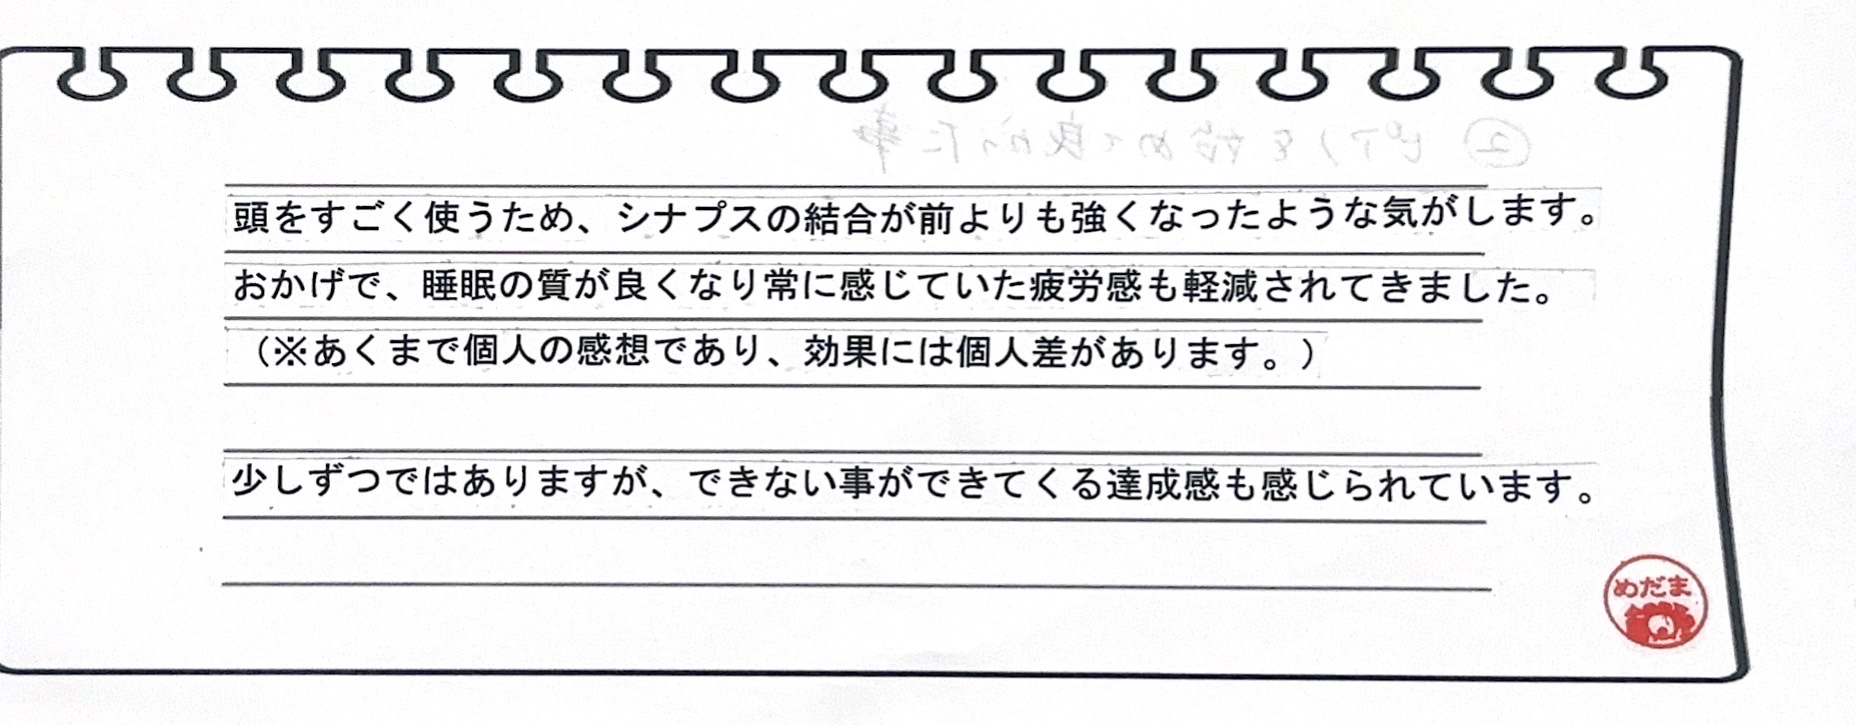 ②ピアノを始めて良かった事
頭をすごく使うため、シナプスの結合が前よりも強くなったような気がします。
おかげで、睡眠の質が良くなり常に感じていた疲労感も軽減されてきました。
（※あくまで個人の感想であり、効果には個人差があります。）
少しずつではありますが、できない事ができてくる達成感も感じられています。
めだま